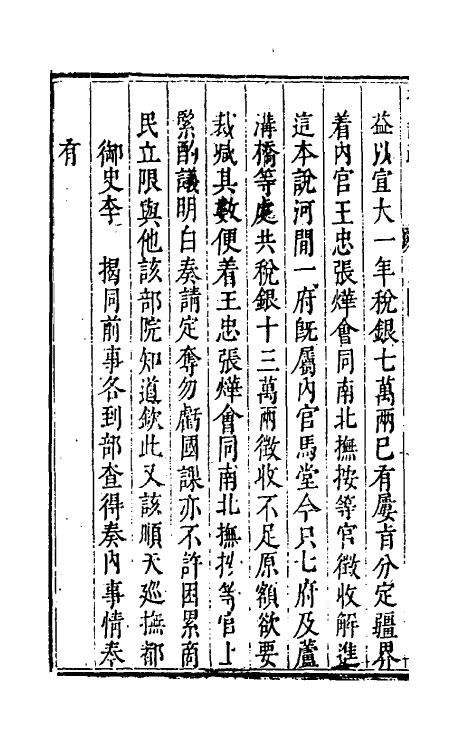 益以宣大一年稅銀七萬兩已有屢旨分定疆界
着內官王忠張燁會同南北撫按等官徵收解進
這本說河間一府旣屬內官馬堂今只七府及蘆
溝橋等處共稅銀十三萬兩徵收不足原額欲要
裁減其數便着王忠張燁會同南北撫按等官上
緊酌議明白奏請定奪勿虧國課亦不許困累商
民立限與他該部院知道欽此又該順天巡撫都
御史李 揭同前事各到部查得奏內事情奉
有